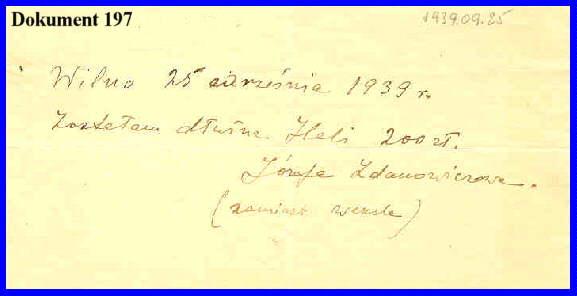 Dokument 197
1939.09.25
Wilno 25 września 1939 r.
Zostałam dłużna Heli 200 zł.
Józefa Zdanowiczowa.
(zamiast weksla)